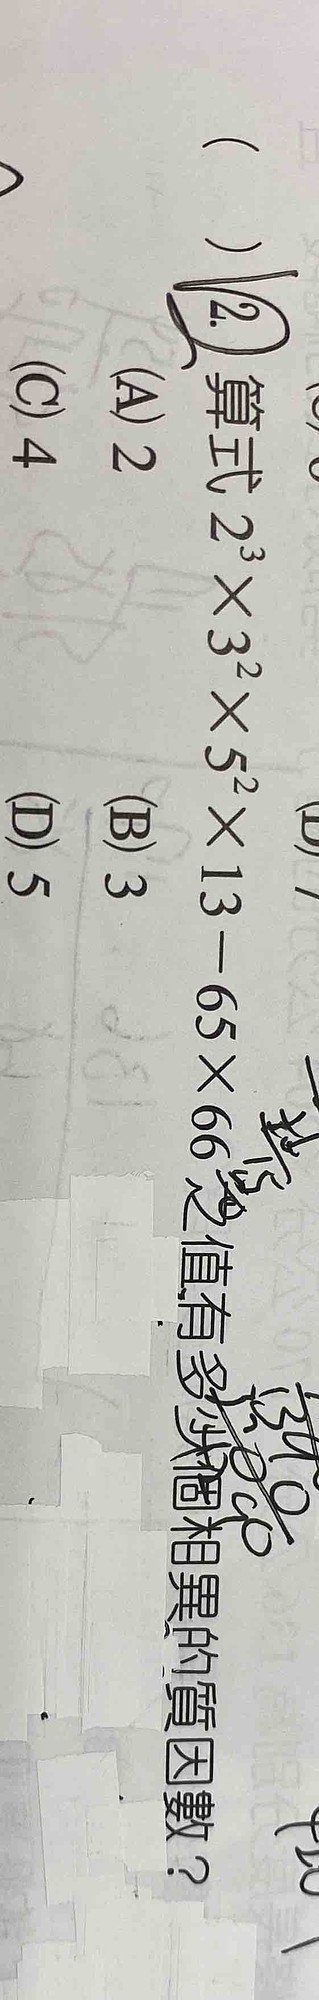 ( ) 2. 算式 2³×3²×5²×13－65×66 之值有多少個相異的質因數？
(A) 2 (B) 3
(C) 4 (D) 5